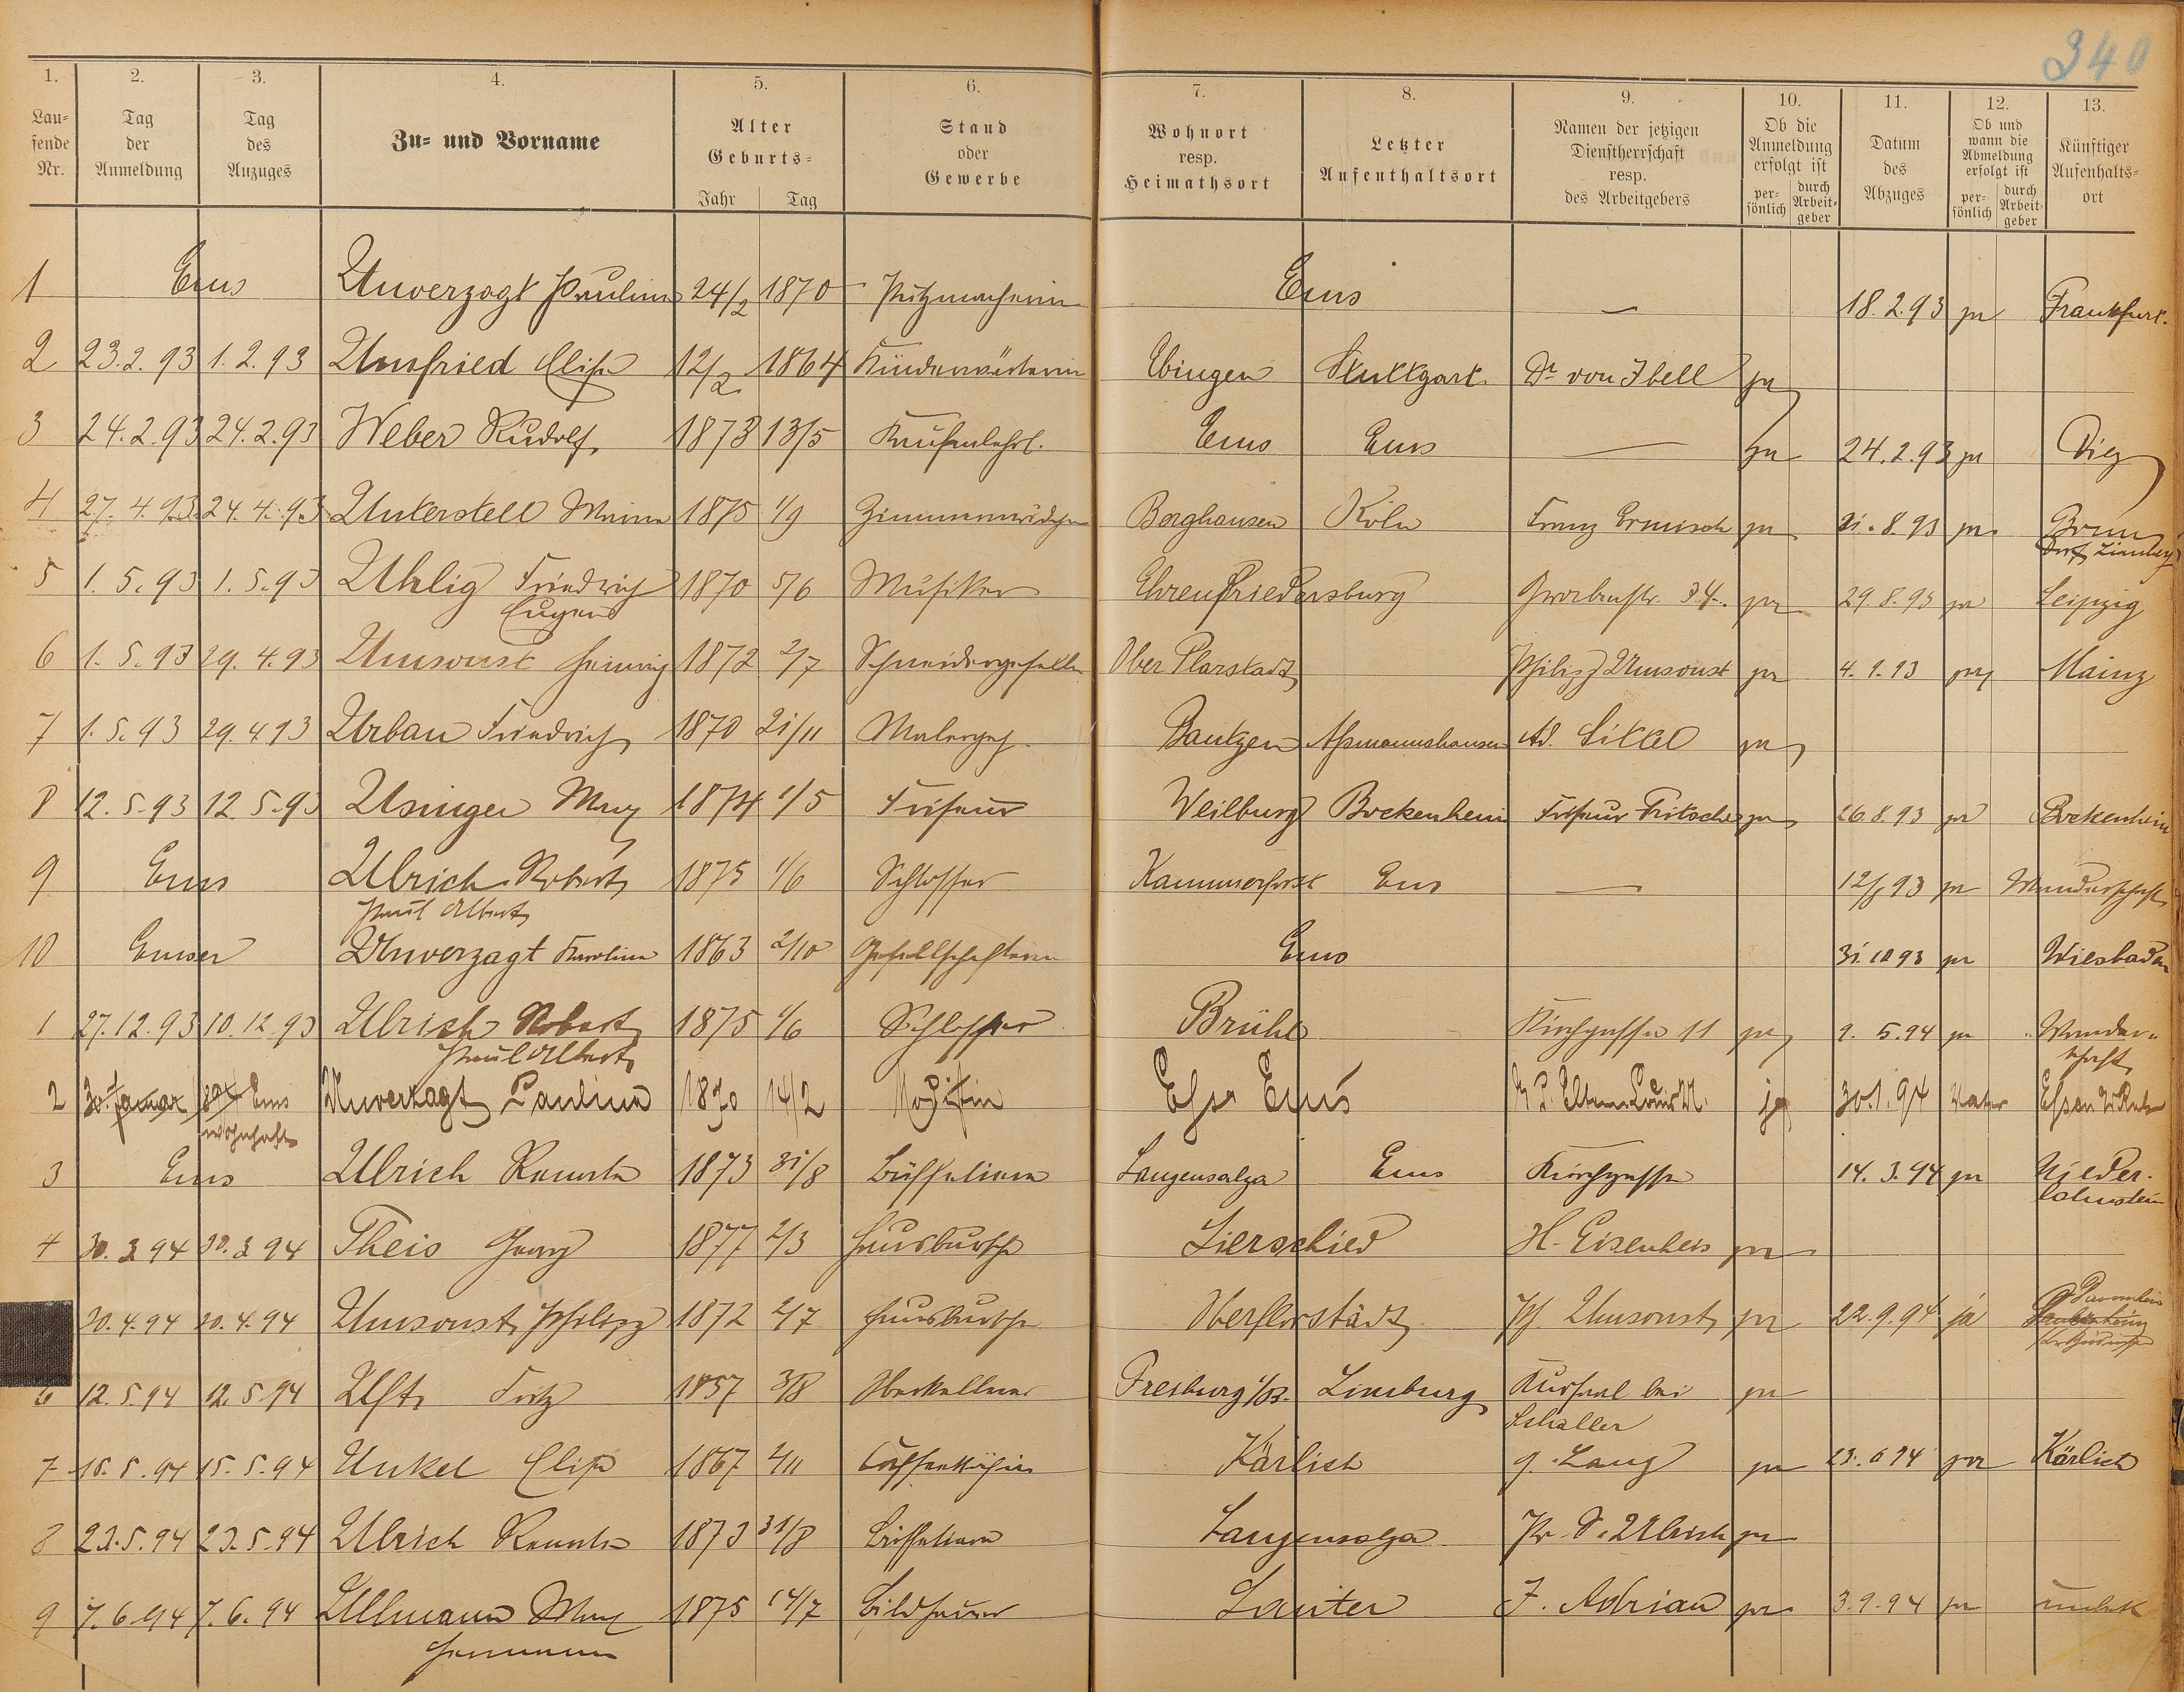 340
1. 2. 3. 4. 5. 6. 7. 8. 9. 10. 11. 12. 13.
Lau=
fende
Nr.
Tag
der
Anmeldung
Tag
des
Anzuges
Zu= und Vorname
Alter
Geburts=
Jahr Tag
Stand
oder
Gewerbe
Wohnort
resp.
Heimathsort
Letzter
Aufenthaltsort
Namen der jetzigen
Dienstherrschaft
resp.
des Arbeitgebers
Ob die
Anmeldung
erfolgt ist
per=
sönlich
durch
Arbeit=
geber
Datum
des
Abzuges
Ob und
wann die
Abmeldung
erfolgt ist
per=
sönlich
durch
Arbeit=
geber
Künftiger
Aufenhalts=
ort
1 Ems Unverzagt Pauline 24/2 1870 Putzmacherin Ems — 18.2.93 ja Frankfurt.
2 23.2.93 1.2.93 Unfried Elise 12/2 1864 Kinderwärterin Ebingen Stuttgart Dr von Ibell ja
3 24.2.93 24.2.93 Weber Rudolf 1873 13/5 Kaufm.lehrl. Ems Ems — ja 24.2.93 ja Diez
4 27.4.93 24.4.93 Unterstell Minna 1875 1/9 Zimmermädchen Berghausen Köln Franz Ermisch ja 31.8.93 ja
5 1.5.93 1.5.93 Uhlig Friedrich 1870 5/6 Musiker Ehrenfriedersburg 34. ja 29.8.93 ja Leipzig
Eugen
6 1.5.93 29.4.93 Umsonst Heinrich 1872 2/7 Schneidergeselle Ober Florstadt Philipp Umsonst ja 4.9.93 ja Mainz
7 1.5.93 29.4.93 Urban Friedrich 1870 21/11 Malergeh. Bautzen Assmannshausen Ad. ja
8 12.5.93 12.5.93 Usinger Max 1874 1/5 Friseur Weilburg Bockenheim Friseur Fritsche ja 26.8.93 ja Bockenheim
9 Ems Ulrich Robert 1875 1/6 Schlosser Kammerforst Ems — 93 ja Wanderschaft
Paul Albert
10 Emser Unverzagt Karoline 1863 2/10 Gesellschafterin Ems 31.10.93 ja Wiesbaden
1 27.12.93 10.12.93 Ulrich Robert 1875 1/6 Schlosser Brühl Kirchgasse 11 ja 9.5.94 ja Wander=
Paul Albert schaft
2 30. Januar 894 Ems Unverzagt Paulina 1870 14/2 Modistin Ems ja 30.1.94 Vater Essen
wohnhaft
3 Ems Ulrich Renata 1873 31/8 Büffetiere Langensalza Ems Kirchgasse 14.3.94 ja Nieder=
lahnstein
4 30.3.94 30.3.94 Theis Georg 1877 2/3 Hausbursche Lierschied H. Eisenheis ja
20.4.94 20.4.94 Umsonst Philipp 1872 2/7 Hausbursche Oberflorstadt Ph Umsonst ja 22.9.94 ja
6 12.5.94 12.5.94 Ulst Fritz 1857 3/8 Oberkellner Freiburg i/B. Limburg Kursaal bei ja
Schaller
7 15.5.94 15.5.94 Unkel Elise 1867 2/11 Kaffeeköchin Kärlich G. Lang ja 23.6.94 ja Kärlich
8 23.5.94 23.5.94 Ulrich Renata 1873 31/8 Büffetiere Langensalza Ulrich ja
9 7.6.94 7.6.94 Ullmann Max 1875 14/7 Bildhauer Lauter J. Adrian ja 3.9.94 ja unbek
Hermann